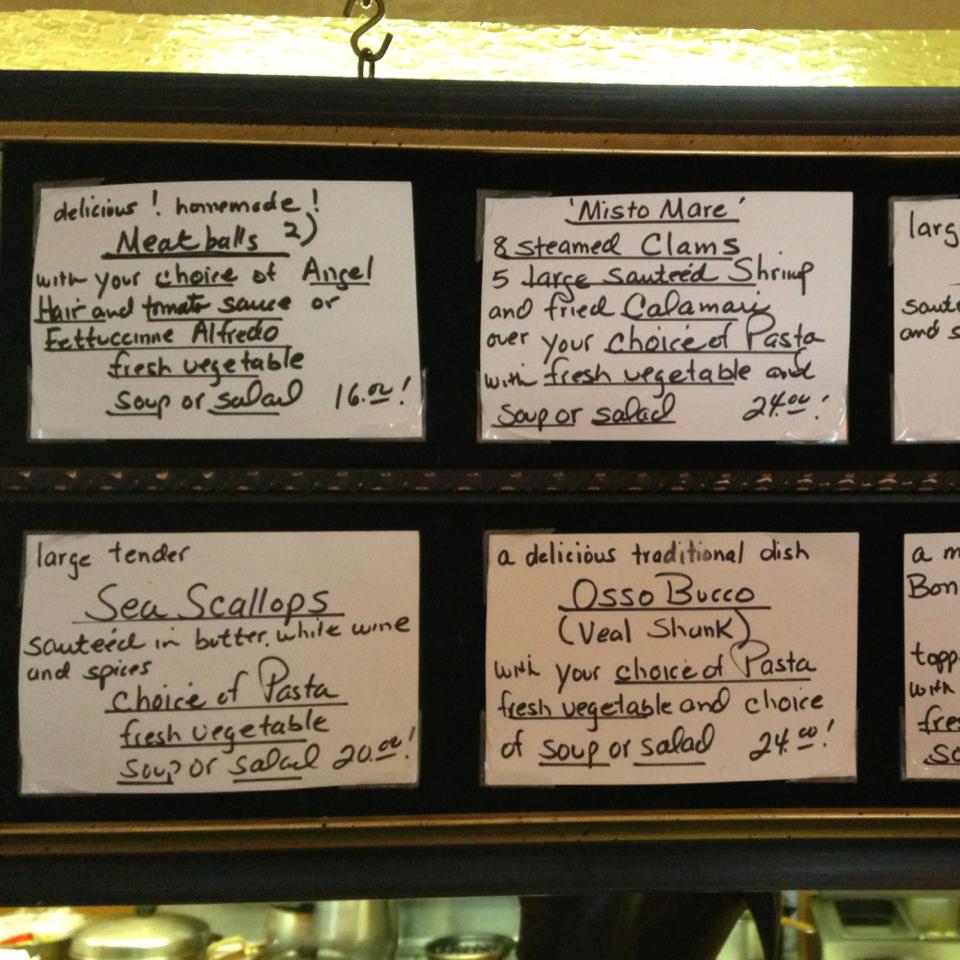 delicious ! homemade !
Meatballs 2)
with your choice of Angel
Hair and tomato sauce or
Fettuccinne Alfredo
fresh vegetable
soup or salad 16.00!
'Misto Mare'
8 steamed Clams
5 large sauteéd Shrimp
and fried Calamari
over your choice of Pasta
with fresh vegetable and
soup or salad 24.00!
larg
saute
and s
large tender
Sea Scallops
sauteéd in butter, white wine
and spices
choice of Pasta
fresh vegetable
soup or salad 20.00!
a delicious traditional dish
Osso Bucco
(Veal Shunk)
with your choice of Pasta
fresh vegetable and choice
of soup or salad 24.00!
a m
Bon
topp
with
fres
so